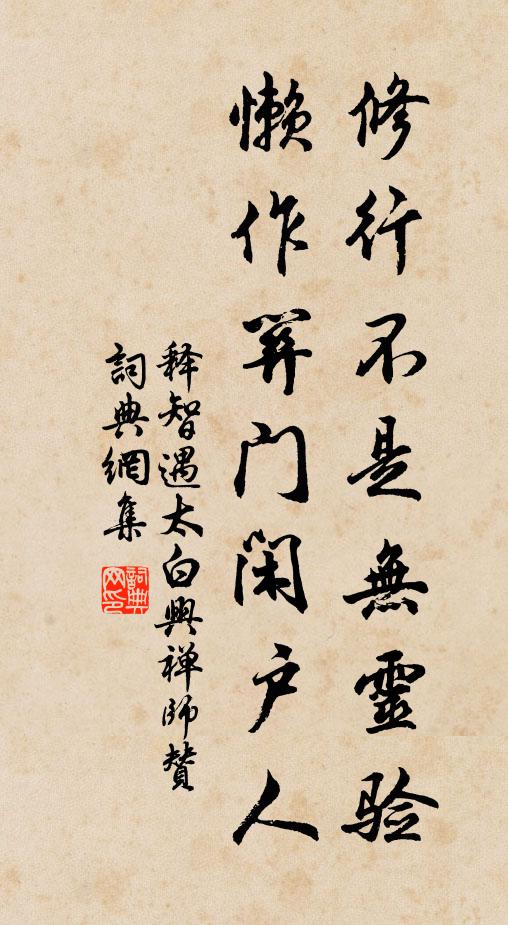 修行不是無靈验
懒作開门閑户人
释智遇太白興禅師贊
詞典網集
詞典
网印